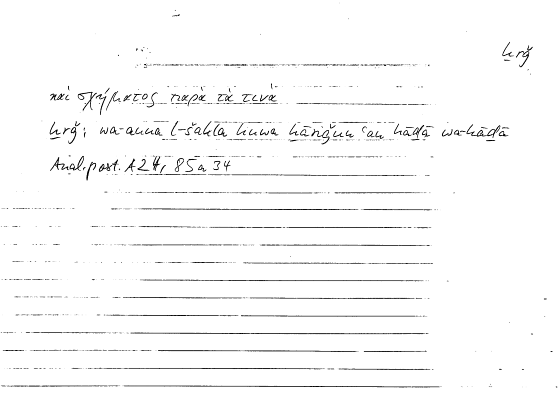 ḫrǧ
καὶ σχήματος παρὰ τὰ τινά
ḫrǧ; wa-anna l-šakla huwa ḫāriǧun ʿan hāḏā wa-hāḏā
Anal. post. A 24, 85a34